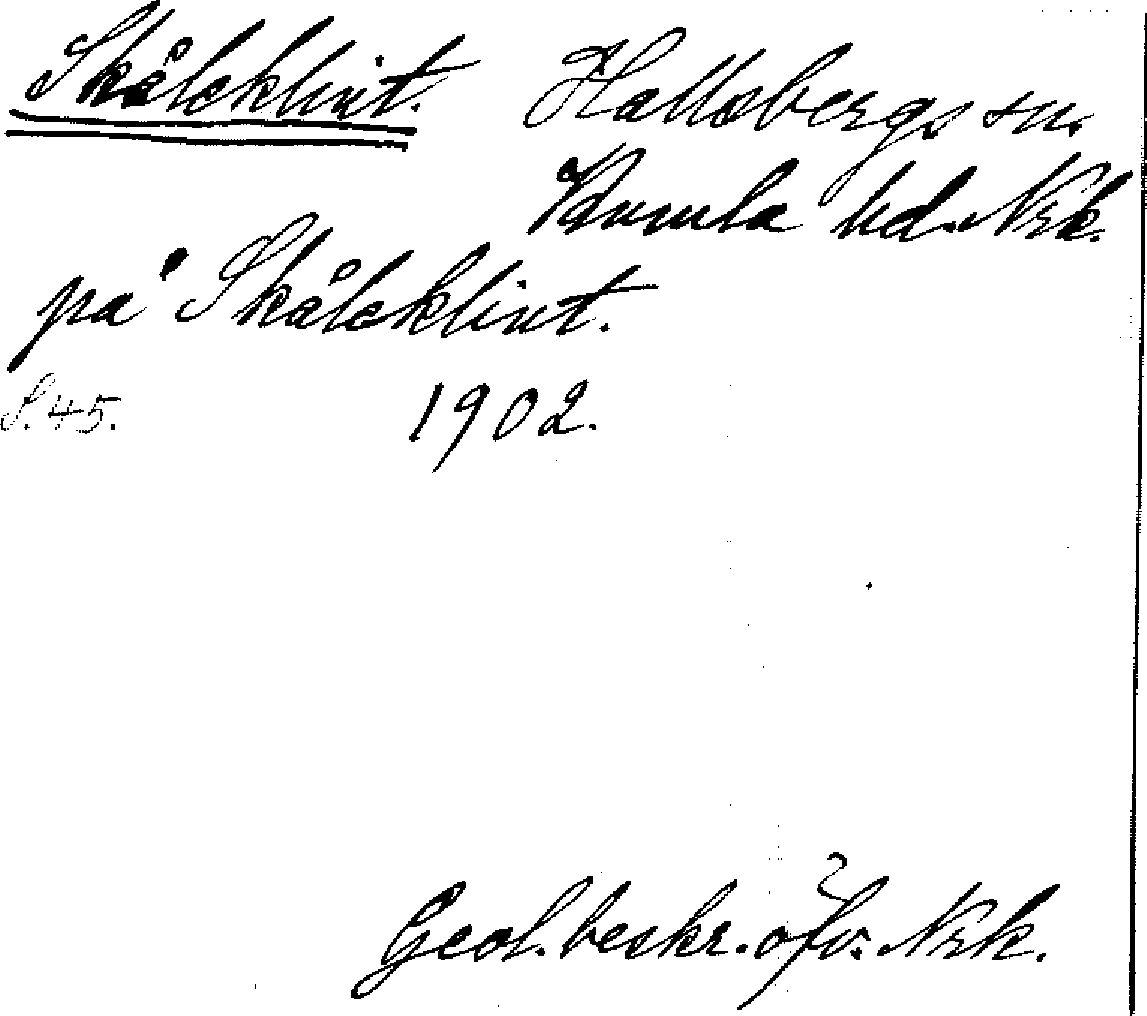 Skåleklint. Hallsbergs sn.
Kumla hd. Nrk.
på Skåleklint.
S. 45. 1902.
Geol. beskr. öfv. Nrk.